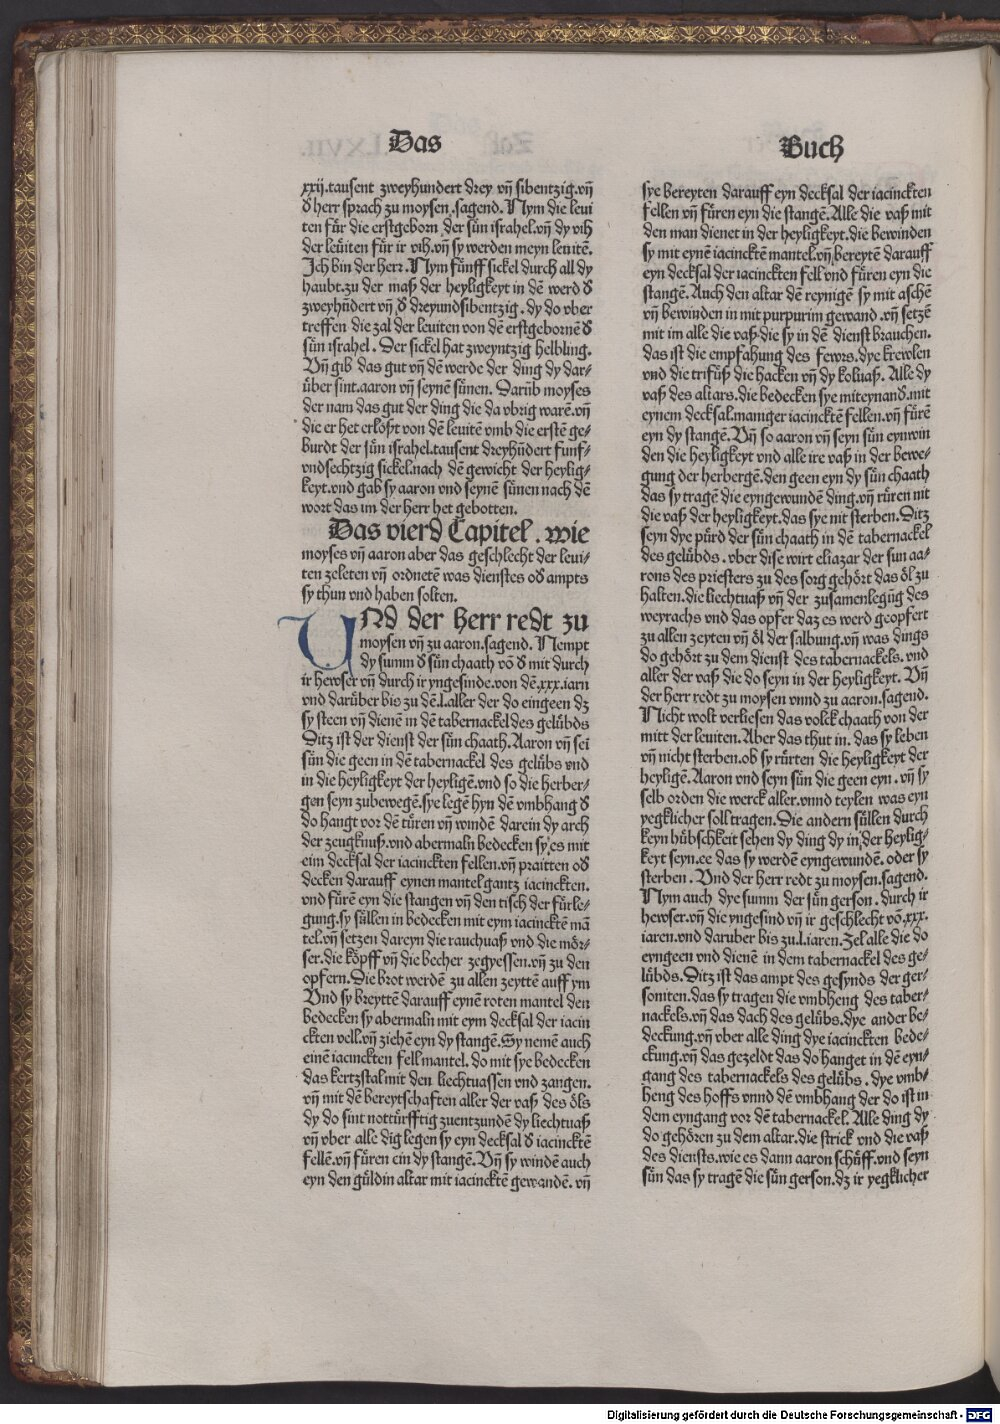 Das
Buch
xxij.tausent zweyhundert drey vñ sibentzig.vñ
d̾ herr sprach zu moysen.sagend.Nym die leui
ten für die erstgeborn der sün israhel.vñ dy vih
der leuiten für ir vih.vñ sy werden meyn leuitē.
Ich bin der herr.Nym fünff sickel durch all dy
haubt.zu der maß der heyligkeyt in dē werd d̾
zweyhūdert vñ d̾ dreyundsibentzig.dy do vber
treffen die zal der leuiten von dē erstgebornē d̾
sün israhel.Der sickel hat zweyntzig helbling.
Vñ gib das gut vñ dē werde der ding dy dar⸗
über sint.aaron vñ seynē sünen. Darūb moyses
der nam das gut der ding die da vbrig warē.vñ
die er het erlößt von dē leuitē vmb die erstē ge⸗
burdt der sün israhel.tausent dreyhūdert funf⸗
vndsechtzig sickel.nach dē gewicht der heylig⸗
keyt.vnd gab sy aaron vnd seynē sünen nach dē
wort das im der herr het gebotten.
Das vierd Capitel.wie
moyses vñ aaron aber das geschlecht der leui⸗
ten zeleten vñ ordnetē was dienstes od̾ ampts
sy thun vnd haben solten.
VNd der herr redt zu
moysen vñ zu aaron.sagend.Nempt
dy summ d̾ sün chaath vō d̾ mit durch
ir hewser vñ durch ir yngesinde.von dē.xxx.iarn
vnd darüber bis zu dē.l.aller der do eingeen dz
sy steen vñ dienē in dē tabernackel des gelübds
Ditz ist der dienst der sün chaath.Aaron vñ sei
sün die geen in dē tabernackel des gelübs vnd
in die heyligkeyt der heyligē.vnd so die herber⸗
gen seyn zubewegē.sye legē hyn dē vmbhang d̾
do hangt vor dē türen vñ windē darein dy arch
der zeugknuß.vnd abermaln bedecken sy es mit
eim decksal der iacinckten fellen.vñ praitten od̾
decken darauff eynen mantel gantz iacinckten.
vnd fürē eyn die stangen vñ den tisch der fürle⸗
gung.sy süllen in bedecken mit eym iacincktē mā
tel.vñ setzen dareyn die rauchuaß vnd die mör⸗
ser.die köpff vñ die becher zegyessen.vñ zu den
opfern.Die brot werdē zu allen zeyttē auff ym
Vnd sy breyttē darauff eynē roten mantel den
bedecken sy abermaln mit eym decksal der iacin
ckten vell.vñ ziehē eyn dy stangē.Sy nemē auch
einē iacinckten fell mantel.do mit sye bedecken
das kertzstal mit den liechtuassen vnd zangen.
vñ mit dē bereytschaften aller der vaß des öls
dy do sint nottürfftig zuentzundē dy liechtuaß
vñ vber alle dig legen sy eyn decksal d̾ iacincktē
fellē.vñ füren ein dy stangē.Vñ sy windē auch
eyn den güldin altar mit iacincktē gewandē.vñ
sye bereyten darauff eyn decksal der iacinckten
fellen vñ füren eyn die stangē.Alle die vaß mit
den man dienet in der heyligkeyt.die bewinden
sy mit eynē iacincktē mantel.vñ bereytē darauff
eyn decksal der iacinckten fell vnd füren eyn die
stangē.Auch den altar dē reynigē sy mit aschē
vñ bewinden in mit purpurim gewand.vñ setzē
mit im alle die vaß.die sy in dē dienst brauchen.
das ist die empfahung des fewrs.dye krewlen
vnd die trifüß die hacken vñ dy koluaß.Alle dy
vaß des altars.die bedecken sye miteynand̾.mit
eynem decksal.maniger iacincktē fellen.vñ fürē
eyn dy stangē.Vñ so aaron vñ seyn sün eynwin
den die heyligkeyt vnd alle ire vaß in der bewe⸗
gung der herbergē.den geen eyn dy sün chaath
das sy tragē die eyngewundē ding.vñ rüren nit
die vaß der heyligkeyt.das sye nit sterben.Ditz
seyn dye pürd der sün chaath in dē tabernackel
des gelübds.vber dise wirt eliazar der sun aa⸗
rons des priesters zu des sorg gehört das öl zu
halten.die liechtuaß vñ der zusamenlegūg des
weyrachs vnd das opfer daz es werd geopfert
zu allen zeyten vñ öl der salbung.vñ was dings
do gehört zu dem dienst des tabernackels.vnd
aller der vaß die do seyn in der heyligkeyt. Vñ
der herr redt zu moysen vnnd zu aaron.sagend.
Nicht wolt verliesen das volck chaath von der
mitt der leuiten.Aber das thut in.das sy leben
vñ nicht sterben.ob sy rürten die heyligkeyt der
heyligē.Aaron vnd seyn sün die geen eyn.vñ sy
selb orden die werck aller.vnnd teylen was eyn
yegklicher soll tragen.Die andern süllen durch
keyn hübschkeit sehen dy ding dy in der heylig⸗
keyt seyn.ee das sy werdē eyngewundē.oder sy
sterben.Vnd der herr redt zu moysen.sagend.
Nym auch dye summ der sün gerson.durch ir
hewser.vñ die yngesind vñ ir geschlecht vō.xxx.
iaren.vnd daruber bis zu.l.iaren.Zel alle die do
eyngeen vnd dienē in dem tabernackel des ge⸗
lübds.Ditz ist das ampt des gesynds der ger⸗
soniten.das sy tragen die vmbheng des taber⸗
nackels.vñ das dach des gelübs.dye ander be⸗
deckung.vñ vber alle ding dye iacinckten bede⸗
ckung.vñ das gezeldt das do hanget in dē eyn⸗
gang des tabernackels des gelübs.dye vmb⸗
heng des hoffs vnnd dē vmbhang der do ist in
dem eyngang vor dē tabernackel.Alle ding dy
do gehören zu dem altar.die strick vnd die vaß
des diensts.wie es dann aaron schüff.vnd seyn
sün das sy tragē die sün gerson.dz ir yegklicher
Digitalisierung gefördert durch die Deutsche Forschungsgemeinschaft - DFG